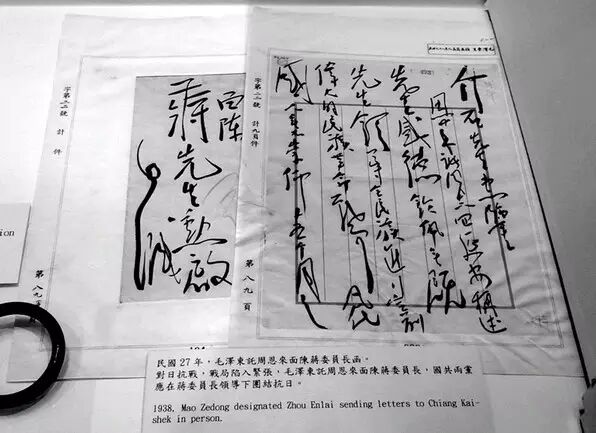 介石先生惠鑒
恩來諸同志回延安稱述
先生盛德欽佩無
先生領導全民族進行空前
偉大的民族革命戰爭凡
國人無不崇仰十五個月之
面陳
蔣先生勳啟
毛緘
第八九頁
民國27年，毛澤東託周恩來面陳蔣委員長函。
對日抗戰，戰局陷入緊張，毛澤東託周恩來面陳蔣委員長，國共兩黨
應在蔣委員長領導下團結抗日。
1938. Mao Zedong designated Zhou Enlai sending letters to Chiang Kai-
shek in person.